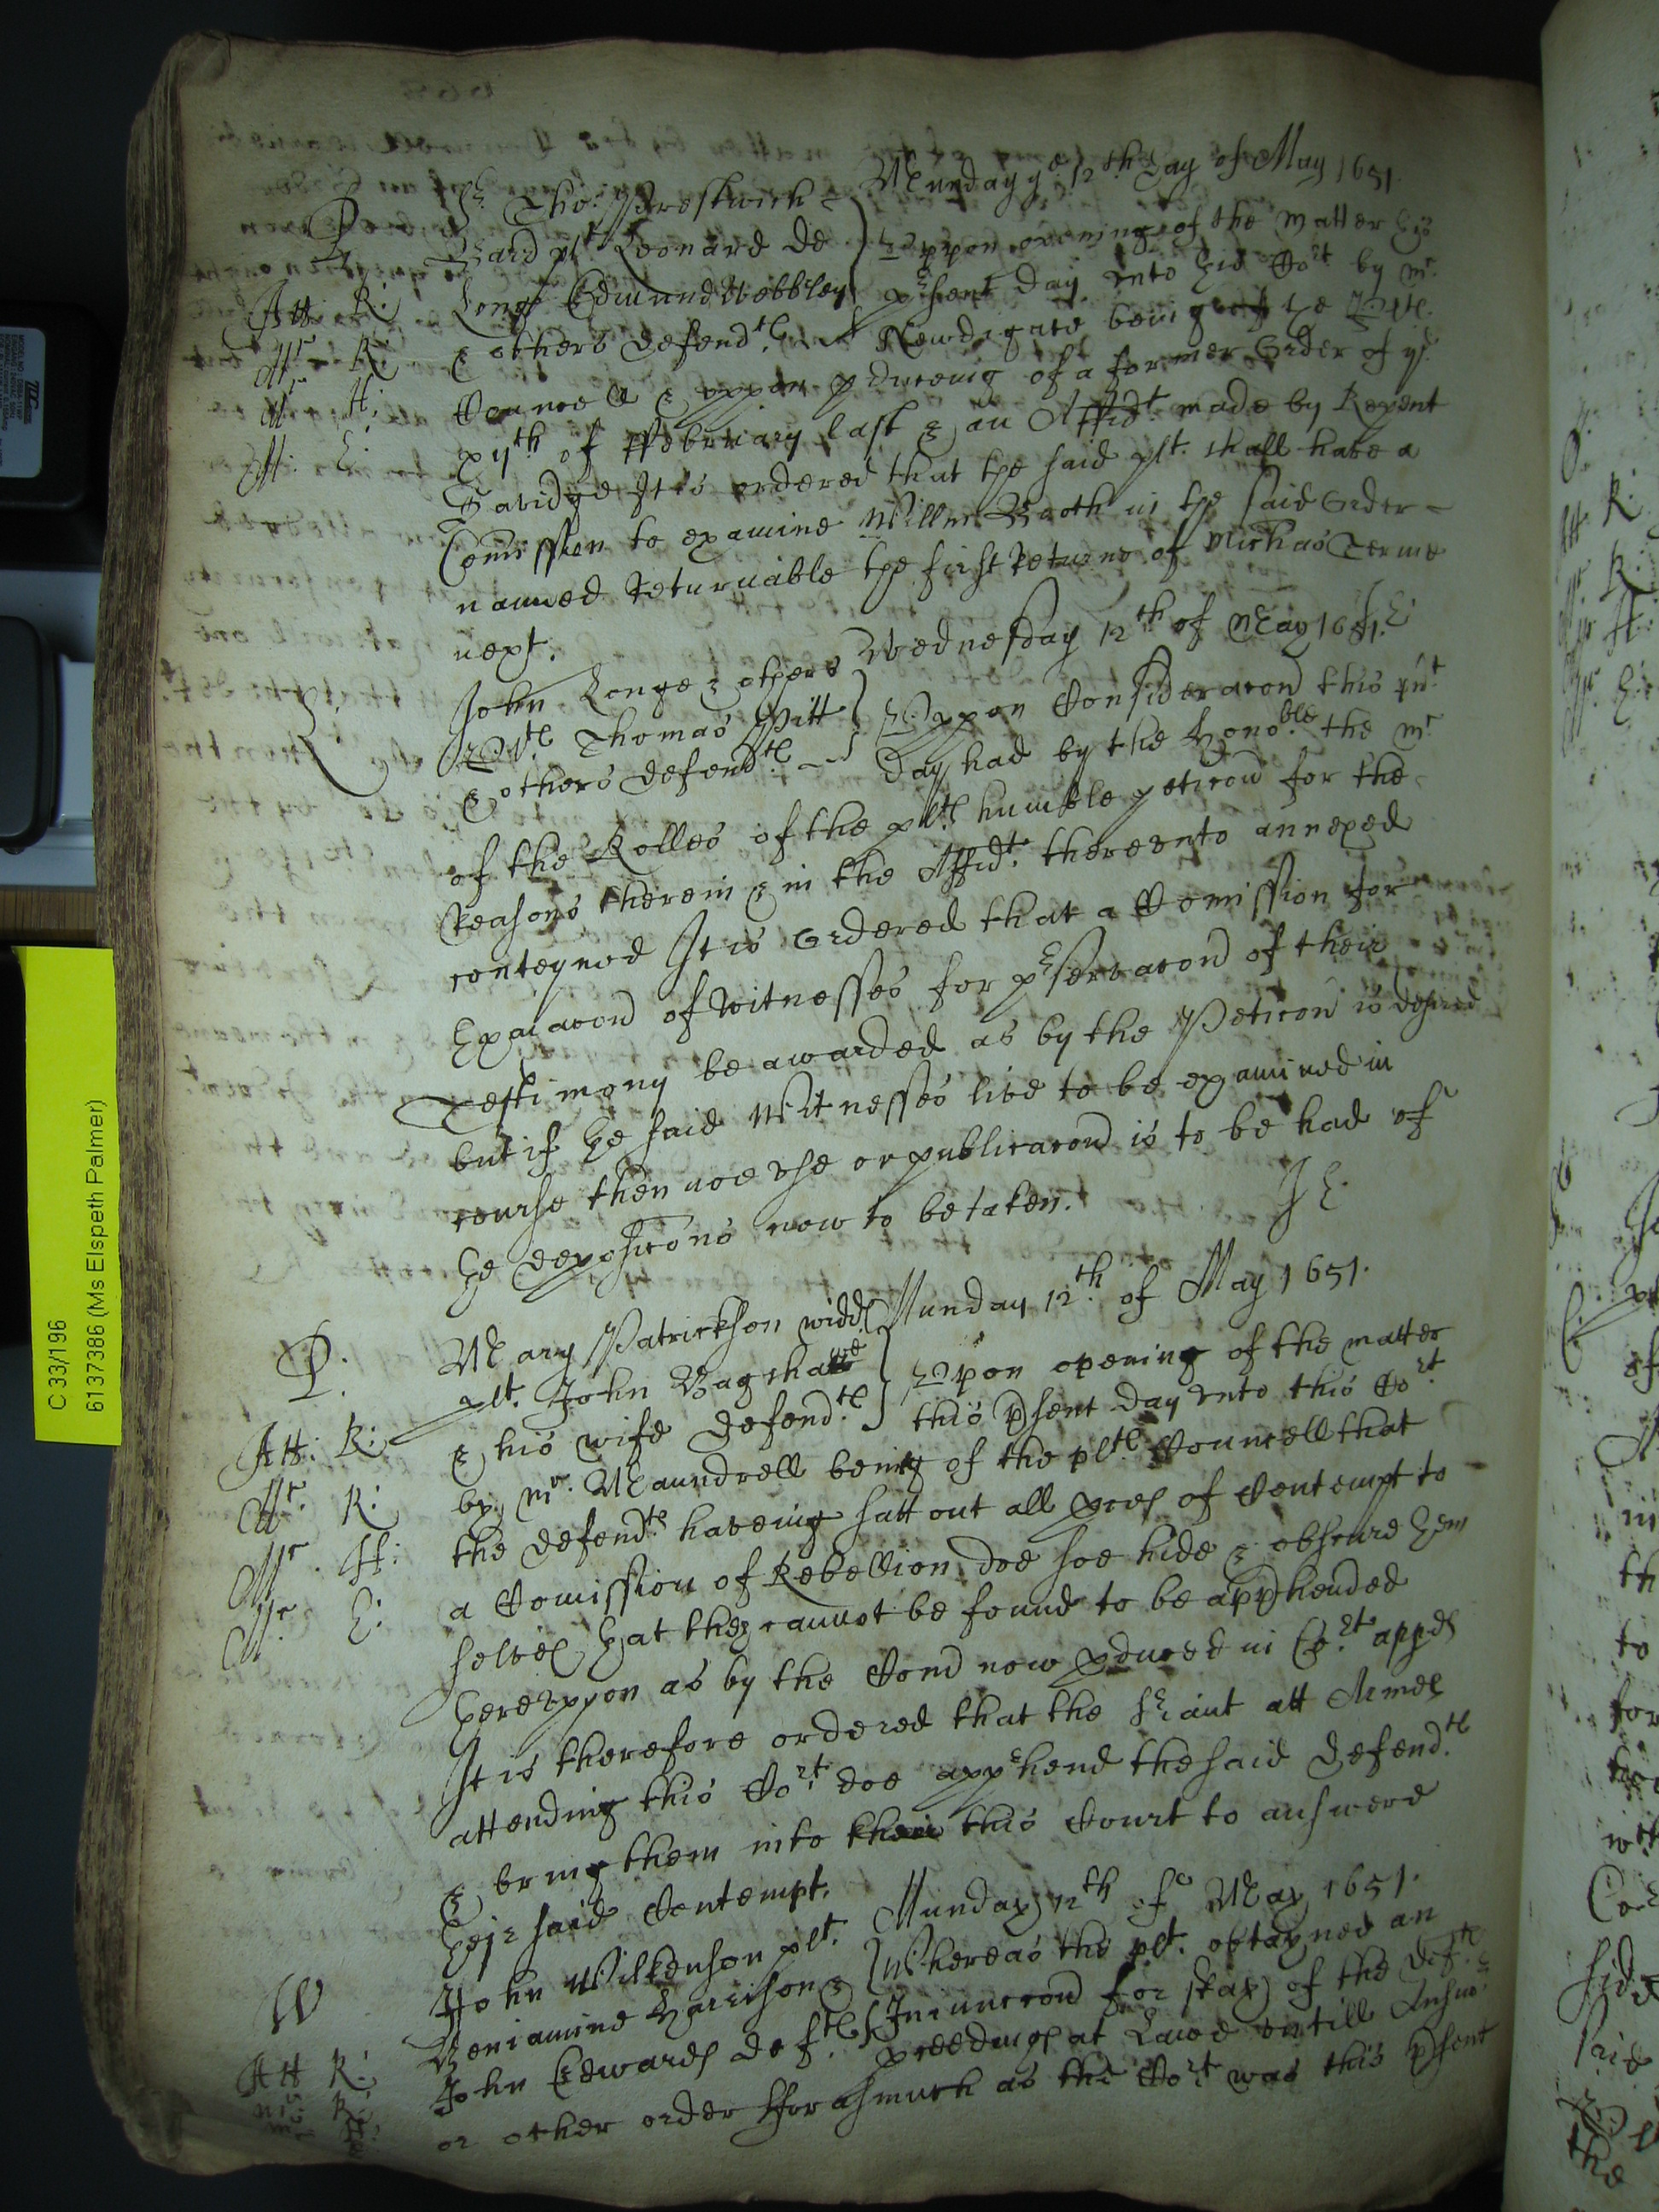 Munday ye 12th day of May 1651.
P
Sr Tho: Prestwich
Bard plt. Leonard de
Long Edmund Webbley
& others defendts.
Uppon opening of the matter this
present day unto this Cort by Mr
Newdigate being of the Plts.
Councell & uppon pduceing of a former Order of ye
xyth of ffebruary last & an Affidt. made by Repent
Savidge It is ordered that the said plt. shall have a
Comission to examine Willm Booth in the said Order
named Returnable the first Returne of Michas Terme
next.
Att R:
Mr R:
Mr H:
Mr E:
Wednesday 12th of May 1651.
L.
John Longe & others
Plts Thomas Pitt
& others defendts
Uppon Consideracon this pnt
day had by the Honoble. the Mr
of the Rolles of the plts humble peticon for the
Reasons therein & in the Affidt. thereunto annexed
conteyned It is Ordered that a Comission for
Exaiacon of Witnesses for pservacon of their
Testimony be awarded as by the Peticon is desired
but if the said Witnesses live to be examined in
course then noe use or publicacon is to be had of
the deposicons now to be taken.
J E.
Munday 12th. of May 1651.
P.
Mary Patrickson widd
plt. John Bagshawe
& his wife defendts.
Upon opening of the matter
this psent day unto this Cort.
by Mr. Maundrell being of the plts Councell that
the defendts haveing satt out all pces of Contempt to
a Comission of Rebellion doe soe hide & obscure them
selves that they cannot be found to be apphended
thereuppon as by the Cond now pduced in Cort. appes
It is therefore ordered that the Sriant att Armes
attending this Cort. doe apprhend the said defendts.
& bring them into their this Court to answere
theire said Contempt.
Att: R:
Mr. R:
Mr H:
Mr E:
Munday 12th of May 1651.
W
John Wilkenson plt.
Beniamine Harrison &
John Edwards defts
Whereas the plt. obtayned an
Iniunccon for stay of the defts
pceedings at Lawe untill Answe
or other order fforasmuch as the Cort was this psent
Att R:
Mr R:
C 33/196
6137386 (Ms Elspeth Palmer)